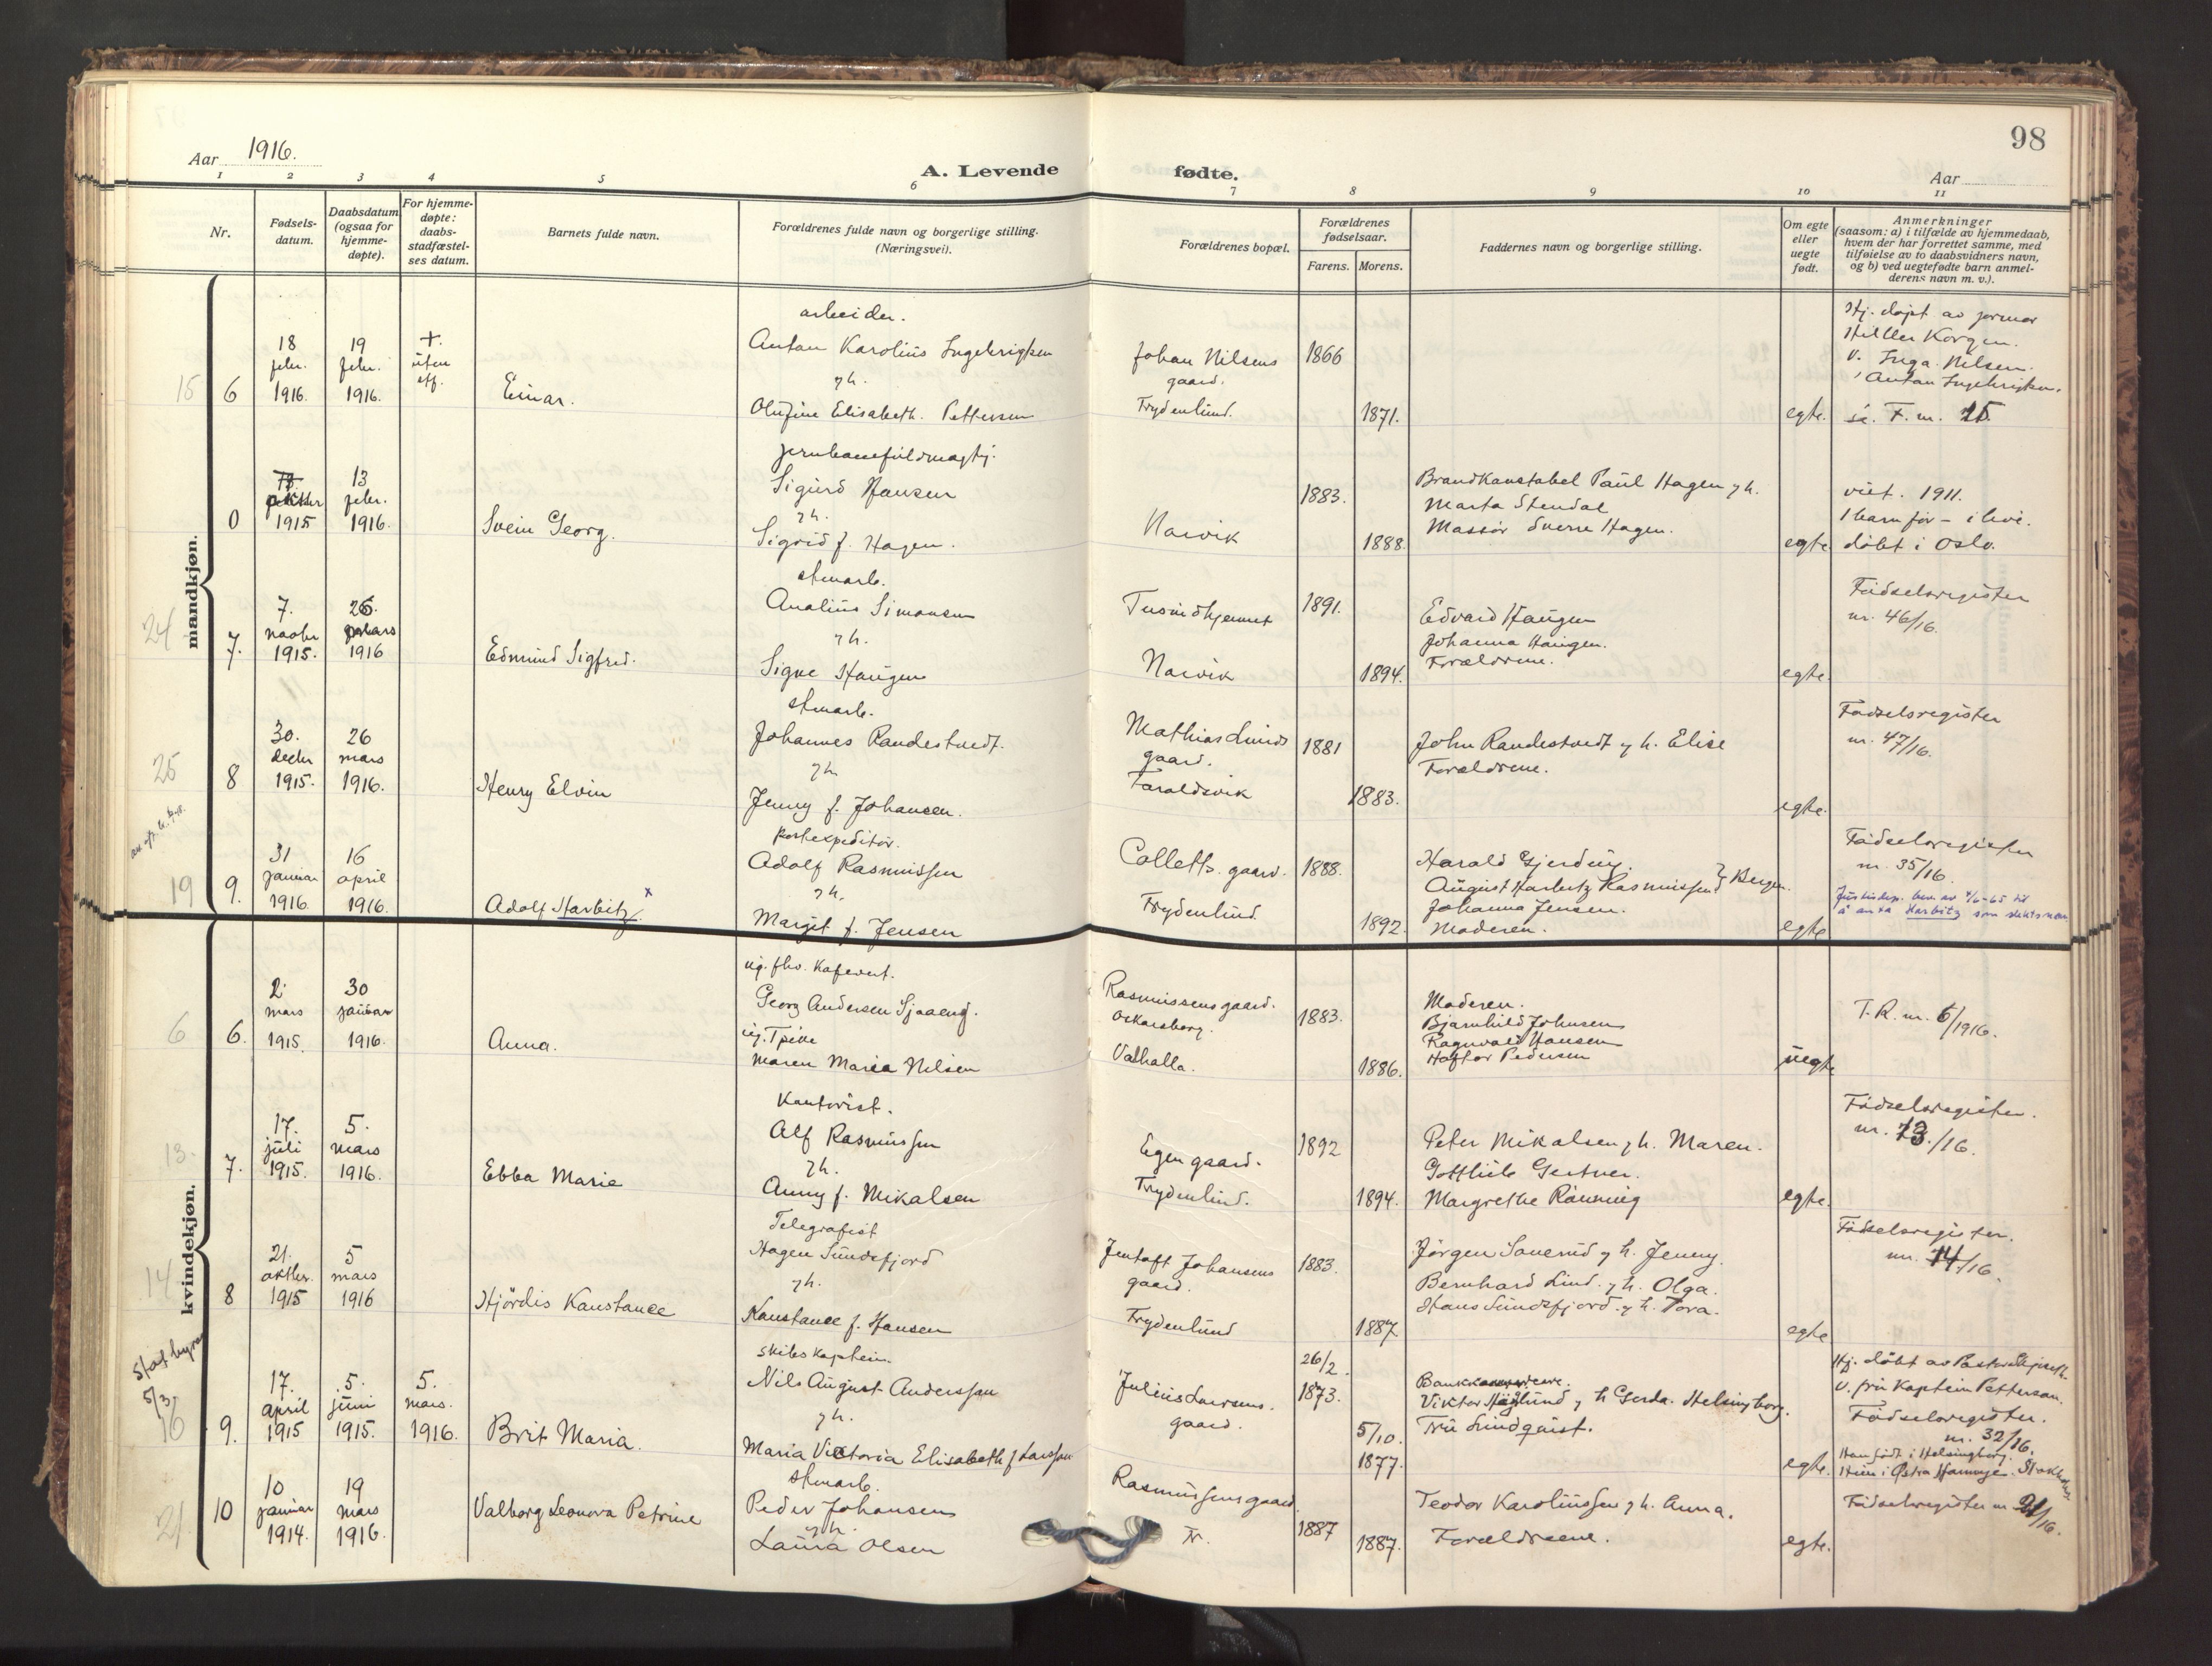 98
Aar 1916.
A. Levende fødte.
Aar
1 2 3 4 5 6 7 8 9 10 11
Nr.
Fødsels-
datum.
Daabsdatum
(ogsaa for
hjemme-
døpte).
For hjemme-
døpte:
daabs-
stadfæstel-
ses datum.
Barnets fulde navn.
Forældrenes fulde navn og borgerlige stilling.
(Næringsvei).
Forældrenes bopæl.
Forældrenes
fødselsaar.
Farens. Morens.
Faddernes navn og borgerlige stilling.
Om egte
eller
uegte
født.
Anmerkninger
(saasom: a) i tilfælde av hjemmedaab,
hvem der har forrettet samme, med
tilføielse av to daabsvidners navn,
og b) ved uegtefødte barn anmel-
derens navn m. v.).
mandkjøn.
15
6
18
febr.
1916.
19
febr.
1916.
+.
uten
stf.
Einar.
arbeider.
Anton Karolius Ingebrigtsen
& h.
Olufine Elisabeth. Pettersen
Johan Nilsens
gaard.
Frydenlund.
1866
1871.
egte.
Hj. døpt av jormor
Hilller Korgen.
v. Inga. Nilsen.
" Anton Ingebrigtsen.
se. F. nr. 15.
0
oktbr
1915
13
febr.
1916.
Svein Georg.
jernbanefuldmægtig.
Sigurd Hansen
& h.
Sigrid f. Hagen.
Narvik
1883.
1888.
Brandkonstabel Paul Hagen & h.
Marta Stendal
Massør Sverre Hagen.
egte.
viet. 1911.
1 barn før – i live.
døbt i Oslo.
24
7.
7.
novbr
1915.
26.
mars
1916
Edmund Sigfred.
stenarb.
Analius Simonsen
& h.
Signe Haugen
Tusindhjemmet
Narvik
1891.
1894.
Edvard Haugen
Johanna Haugen.
Forældrene.
egte.
Fødselsregister
nr. 46/16.
25
8
30.
decbr
1915.
26
mars
1916.
Henry Elvin
stenarb.
Johannes Randestvedt.
& h
Jenny f. Johansen.
Mathias Lunds
gaard.
Faraldsvik
1881
1883.
John Randestvedt & h. Elise
Forældrene.
egte.
Fødselsregister
nr. 47/16.
19
9.
31
januar
1916
16
april
1916.
Adolf Harbitz. x
postexpeditør.
Adolf Rasmussen
& h.
Margit f. Jensen
Colletts. gaard.
Frydenlund.
1888.
1892.
Harald Gjerding.
August Harbitz Rasmussen } Bergen.
Johanna Jensen.
Moderen.
egte
Fødselsregister
nr. 35/16.
Justisdep. bev. av 4/6-65 til
å anta Harbitz som slektsnavn
kvindekjøn.
6
6.
2.
mars
1915.
30
januar
1916.
Anna.
ug. fhv. Kafevert.
Georg Andersen Sjaaeng.
ug. Pike
Maren Maria Nilsen
Rasmussens gaard.
Oskarsborg.
Valhalla.
1883.
1886.
Moderen.
Bjarnhild Johnsen
Ragnvald Hansen
Haftor Pedersen
uegte
F. R. nr. 6/1916.
13.
7.
17.
juli
1915.
5.
mars
1916.
Ebba Marie
Kontorist.
Alf Rasmussen
& h.
Anny f. Mikalsen
Egen gaard.
Frydenlund.
1892
1894.
Peter Mikalsen & h. Maren.
Gottlieb Gertner.
Margrethe Rønning
egte.
Fødselsregister.
nr. 13./16.
14
8
21.
oktbr.
1915
5
mars
1916
Hjördis Konstance
Telegrafist
Hagen Sundsfjord
& h.
Konstance f. Hansen
Jentoft Johansens
gaard.
Frydenlund
1883.
1887
Jørgen Saverud & h. Jenny.
Bernhard Lind. & h. Olga.
Hans Sundsfjord. & h. Tora.
egte
Fødselsregister.
nr. 14/16.
5/3
16
9.
17.
april
1915
5.
juni
1915.
5.
mars.
1916.
Brit Maria.
skibskaptein.
Nils August Andersson
& h.
Maria Victoria Elisabeth f Larsson
Julius Larsens.
gaard.
26/2
1873.
5/10.
1877.
Viktor Höglund & h Gerda. Helsingborg.
Fru Lindquist.
egte.
Hj. døbt av Pastor
v. fru Kaptein Petterson.
Fødselsregister.
nr. 32/16.
Han født i Helsingborg.
Hun i Østra
21
10
10
januar
1914.
19
mars
1916.
Valborg Leonora Petrine
stenarb.
Peder Johansen
& h.
Laura Olsen
Rasmussens gaard.
Fr.
1887
1887.
Teodor Karolinssen & h. Anna.
Forældreene.
egte.
Fødselsregister nr 21/16.